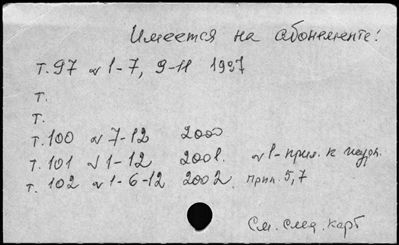 Имеется на абонементе:
т. 97 № 1-7, 9-11 1997
т.
т.
т. 100 № 7-12 2000
т. 101 № 1-12 2001. № 1-прил. к журн.
т. 102 № 1-6-12 2002. прил. 5,7
См. след. карт